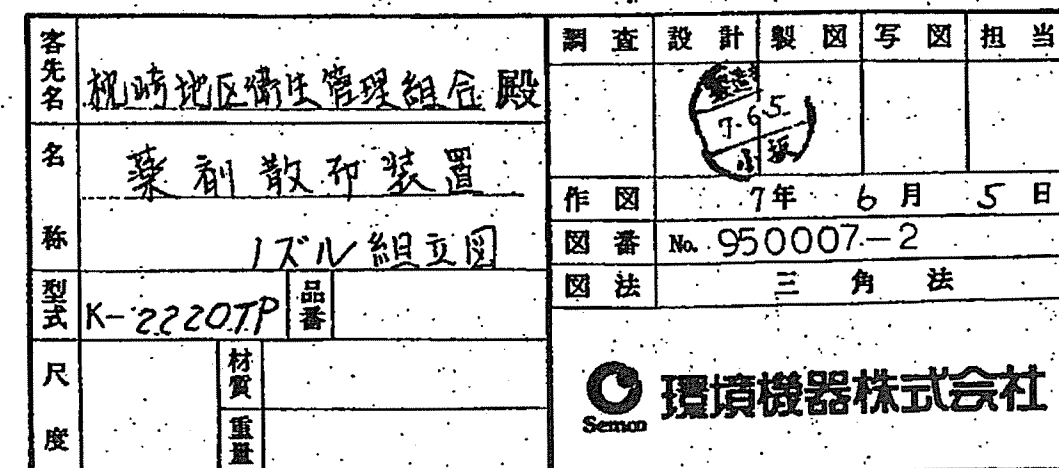 客先名 枕崎地区衛生管理組合 殿
名称 薬剤散布装置
ノズル組立図
型式 K-2220TP 品番
尺度 材質
重量
調査 設計 製図 写図 担当
7.6.5
小坂
作図 7年 6月 5日
図番 No. 950007-2
図法 三角法
Semon 環境機器株式会社